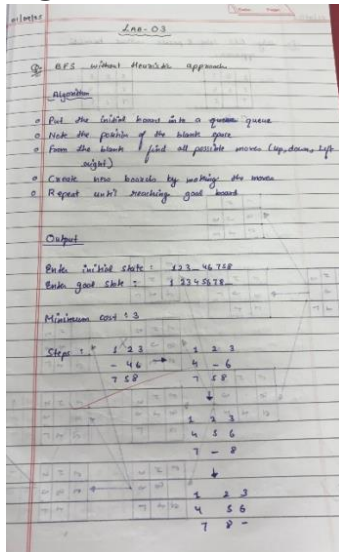 LAB-03
BFS without Heuristic approach
Algorithm
o Put the initial board into a queue
o Note the position of the blank space
o From the blank find all possible moves (up, down, left
right)
o Create new boards by making the moves
o Repeat until reaching goal board
Output
Enter initial state : 123_46758
Enter goal state : 12345678_
Minimum cost : 3
Steps :
1 2 3
- 4 6
7 5 8
→
1 2 3
4 - 6
7 5 8
↓
1 2 3
4 5 6
7 - 8
↓
1 2 3
4 5 6
7 8 -